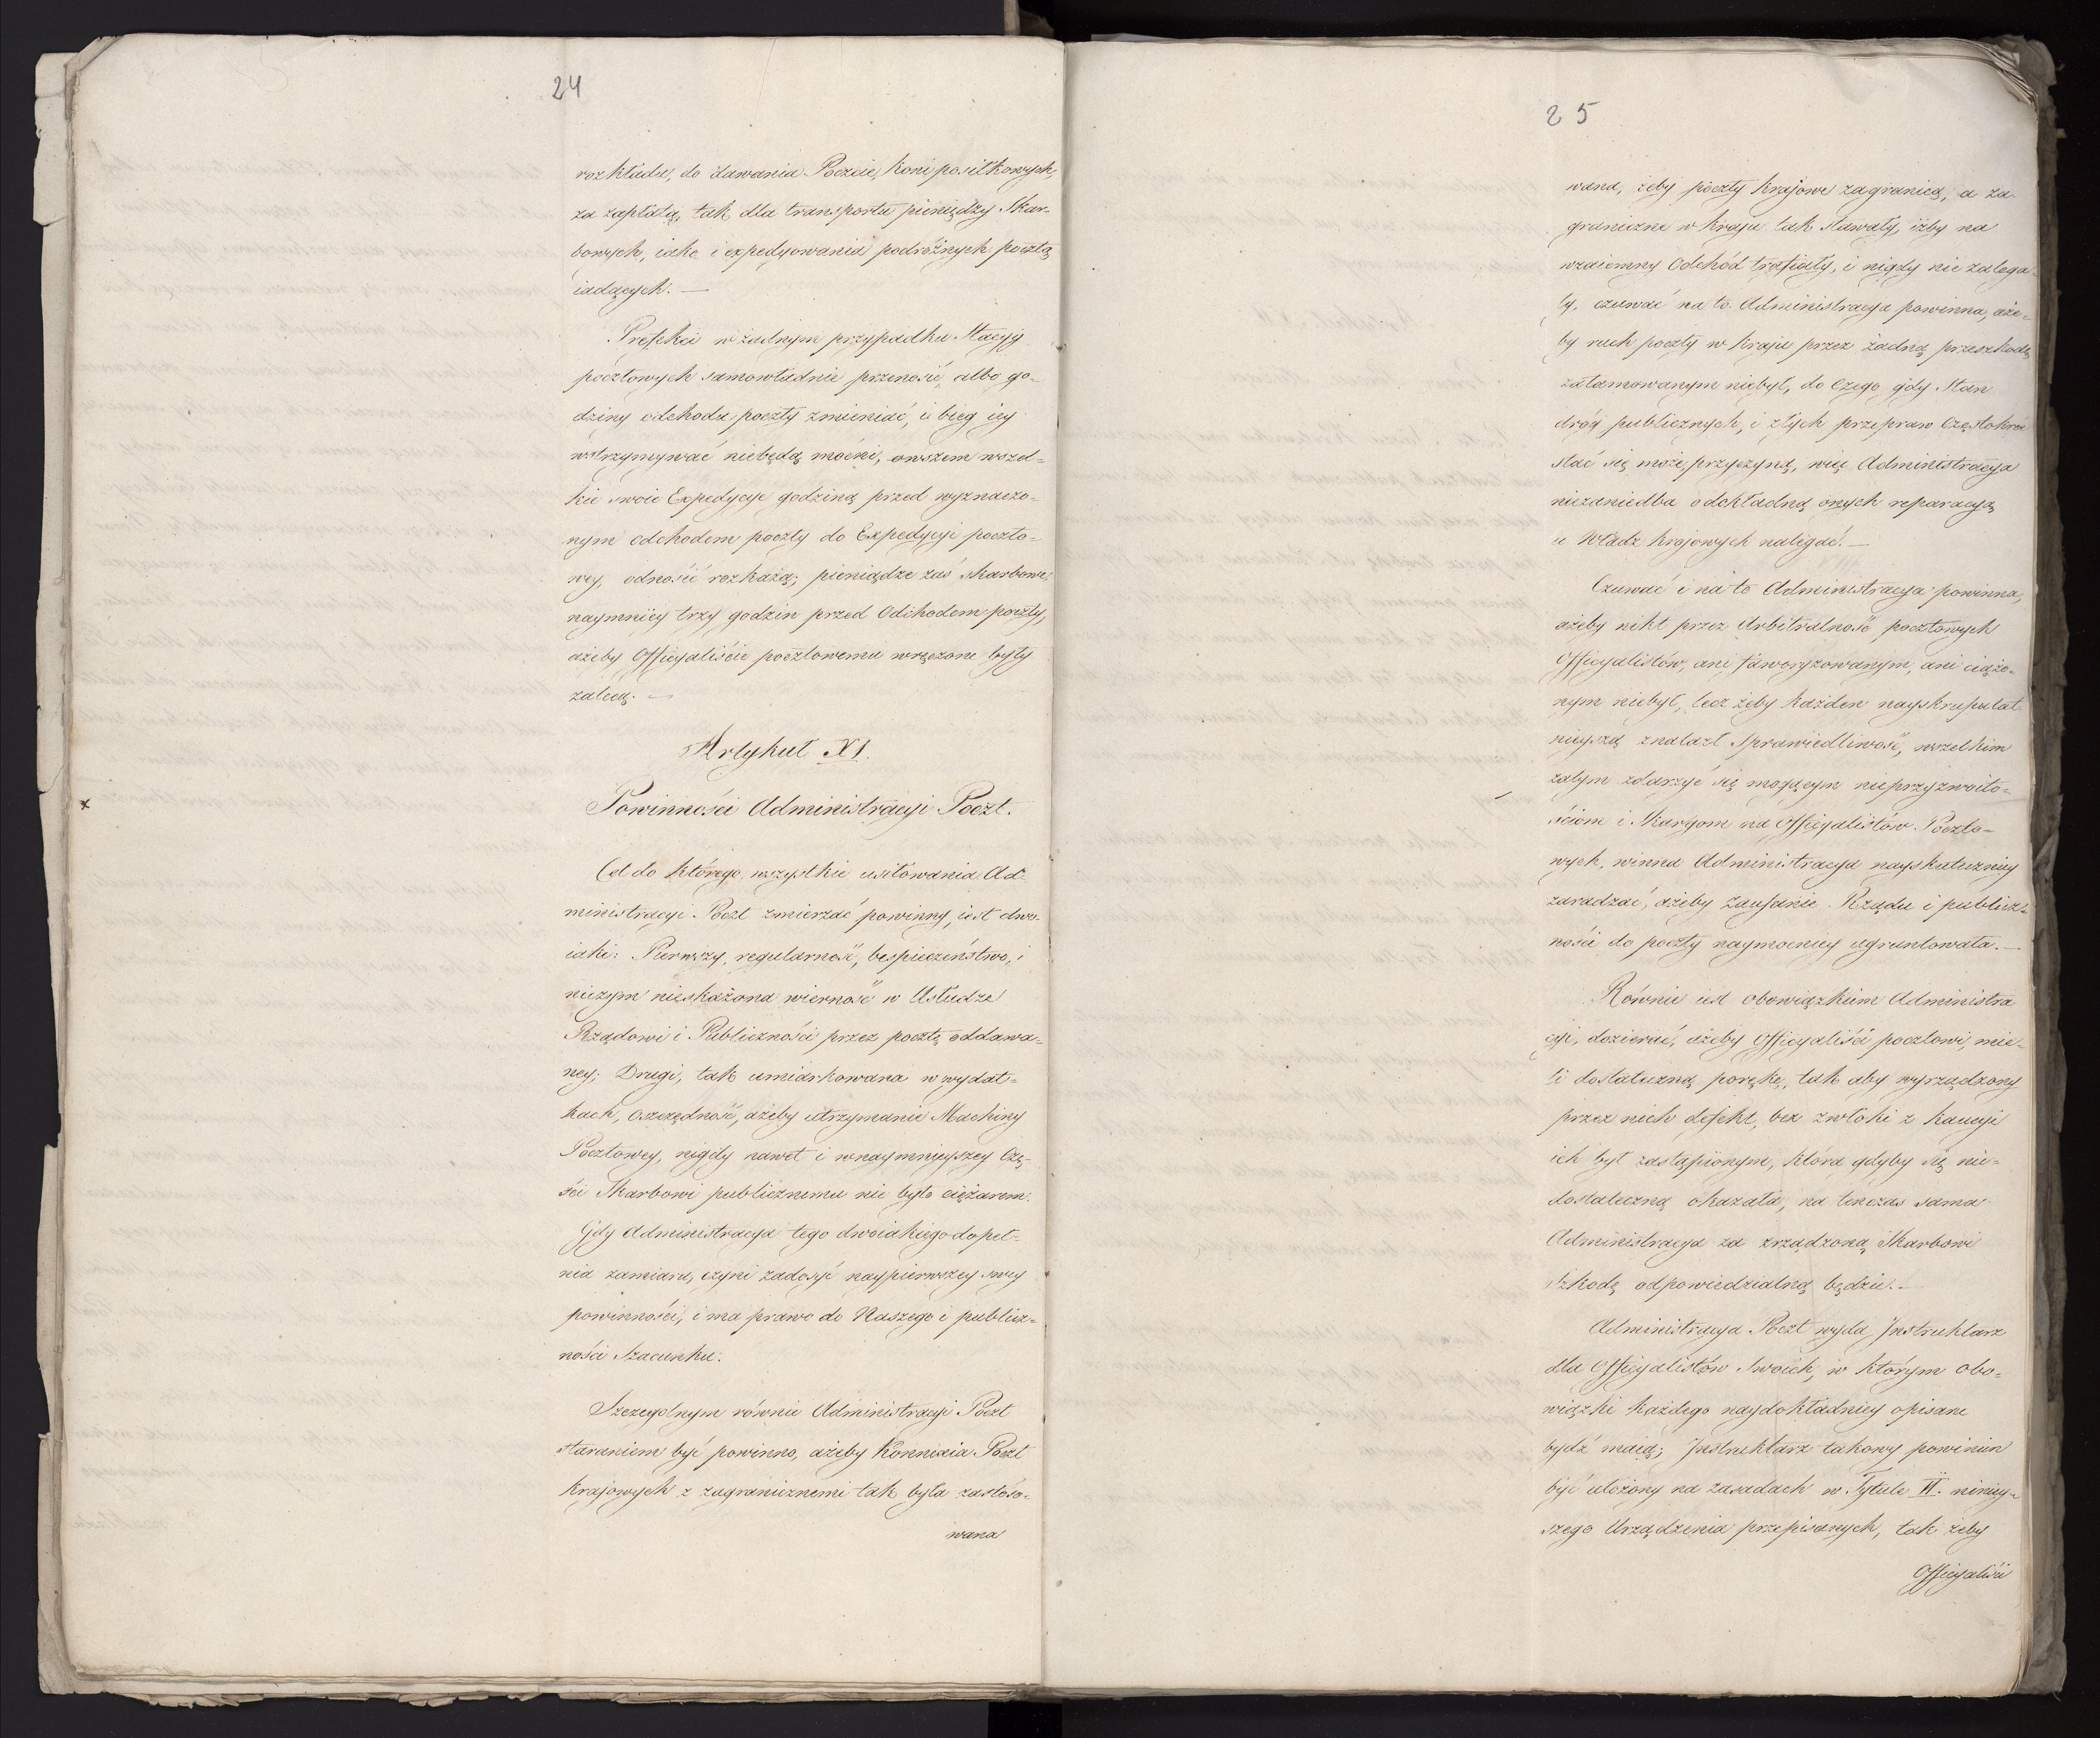 24
rozkładu, do dawania Poczcie, koni posiłkowych,
za zapłatą, tak dla transportu pieniędzy Skar-
bowych, iako i expedyowania podróżnych pocztą
iadących. —
Prefekci w żadnym przypadku Stacyy
pocztowych samowładnie przenosić, albo go-
dziny odchodu poczty zmieniać, i bieg iey
wstrzymywać niebędą mocni, owszem wszel-
kie swoie Expedycye godziną przed wyznaczo-
nym odchodem poczty do Expedycyi poczto-
wey, odnosić rozkażą; pieniądze zaś skarbowe
naymniey trzy godzin przed Odchodem poczty,
ażeby Officyaliście pocztowemu wręczone były
zalecą. —
Artykuł XI.
x
Powinności Administracyi Poczt.
Cel do którego wszystkie usiłowania Ad-
ministracyi Poczt zmierzać powinny, iest dwo-
iaki: Pierwszy, regularność, bespieczeństwo, i
niczym nieskażona wierność w Usłudze
Rządowi i Publiczności przez pocztę oddawa-
ney; Drugi, tak umiarkowana w wydat-
kach, oszczędność, ażeby utrzymanie Machiny
Pocztowey, nigdy nawet i w naymnieyszey Czę-
ści Skarbowi publicznemu nie było ciężarem.
Gdy Administracya tego dwoiakiego dopeł-
nia zamiaru, czyni zadosyć naypierwszey swey
powinności, i ma prawo do Naszego i publicz-
ności Szacunku.
Szczególnym równie Administracyi Poczt
staraniem być powinno, ażeby Konnixia Poczt
krajowych z zagranicznemi tak była zastóso-
wana
25
wana, żeby poczty krajowe zagranicą, a za-
graniczne w kraju tak stawały, iżby na
wzaiemny Odchód trafiały, i nigdy nie zalega-
ły, czuwać na to Administracya powinna, aże-
by ruch poczty w kraju przez żadną przeszkodę
zatamowanym niebył, do czego gdy Stan
dróg publicznych, i złych przepraw Częstokroć
stać się może przyczyną, więc Administracya
niezaniedba o dokładną onych reparacyą
u Władz krajowych nalegać. —
Czuwać i na to Administracya powinna,
ażeby nikt przez Arbitralność pocztowych
Officyalistów, ani faworyzowanym, ani ciążo-
nym niebył, lecz żeby każden nayskrupulat-
nieyszą znalazł Sprawiedliwość, wszelkim
zatym zdarzyć się mogącym nieprzyzwoito-
ściom i Skargom na Officyalistów Poczto-
wych, winna Administracya nayskuteczniey
zaradzać, ażeby zaufanie Rządu i publicz-
ności do poczty naymocniey ugruntowała. —
Równie iest obowiązkiem Administra
cyi, dozierać, ażeby Officyaliści pocztowi, mie-
li dostateczną porękę, tak aby wyrządzony
przez nich defekt, bez zwłoki z kaucyi
ich był zastąpionym, która gdyby się nie-
dostateczną okazała, na tenczas sama
Administracya za zrządzoną Skarbowi
Szkodę odpowiedzialną będzie. —
Administracya Poczt wyda Instruktarz
dla Officyalistów Swoich, w którym obo-
wiązki każdego naydokładniey opisane
bydź maią; Instruktarz takowy powinien
być ułożony na zasadach w Tytule II. niniey-
szego Urządzenia przepisanych, tak żeby
Officyaliści